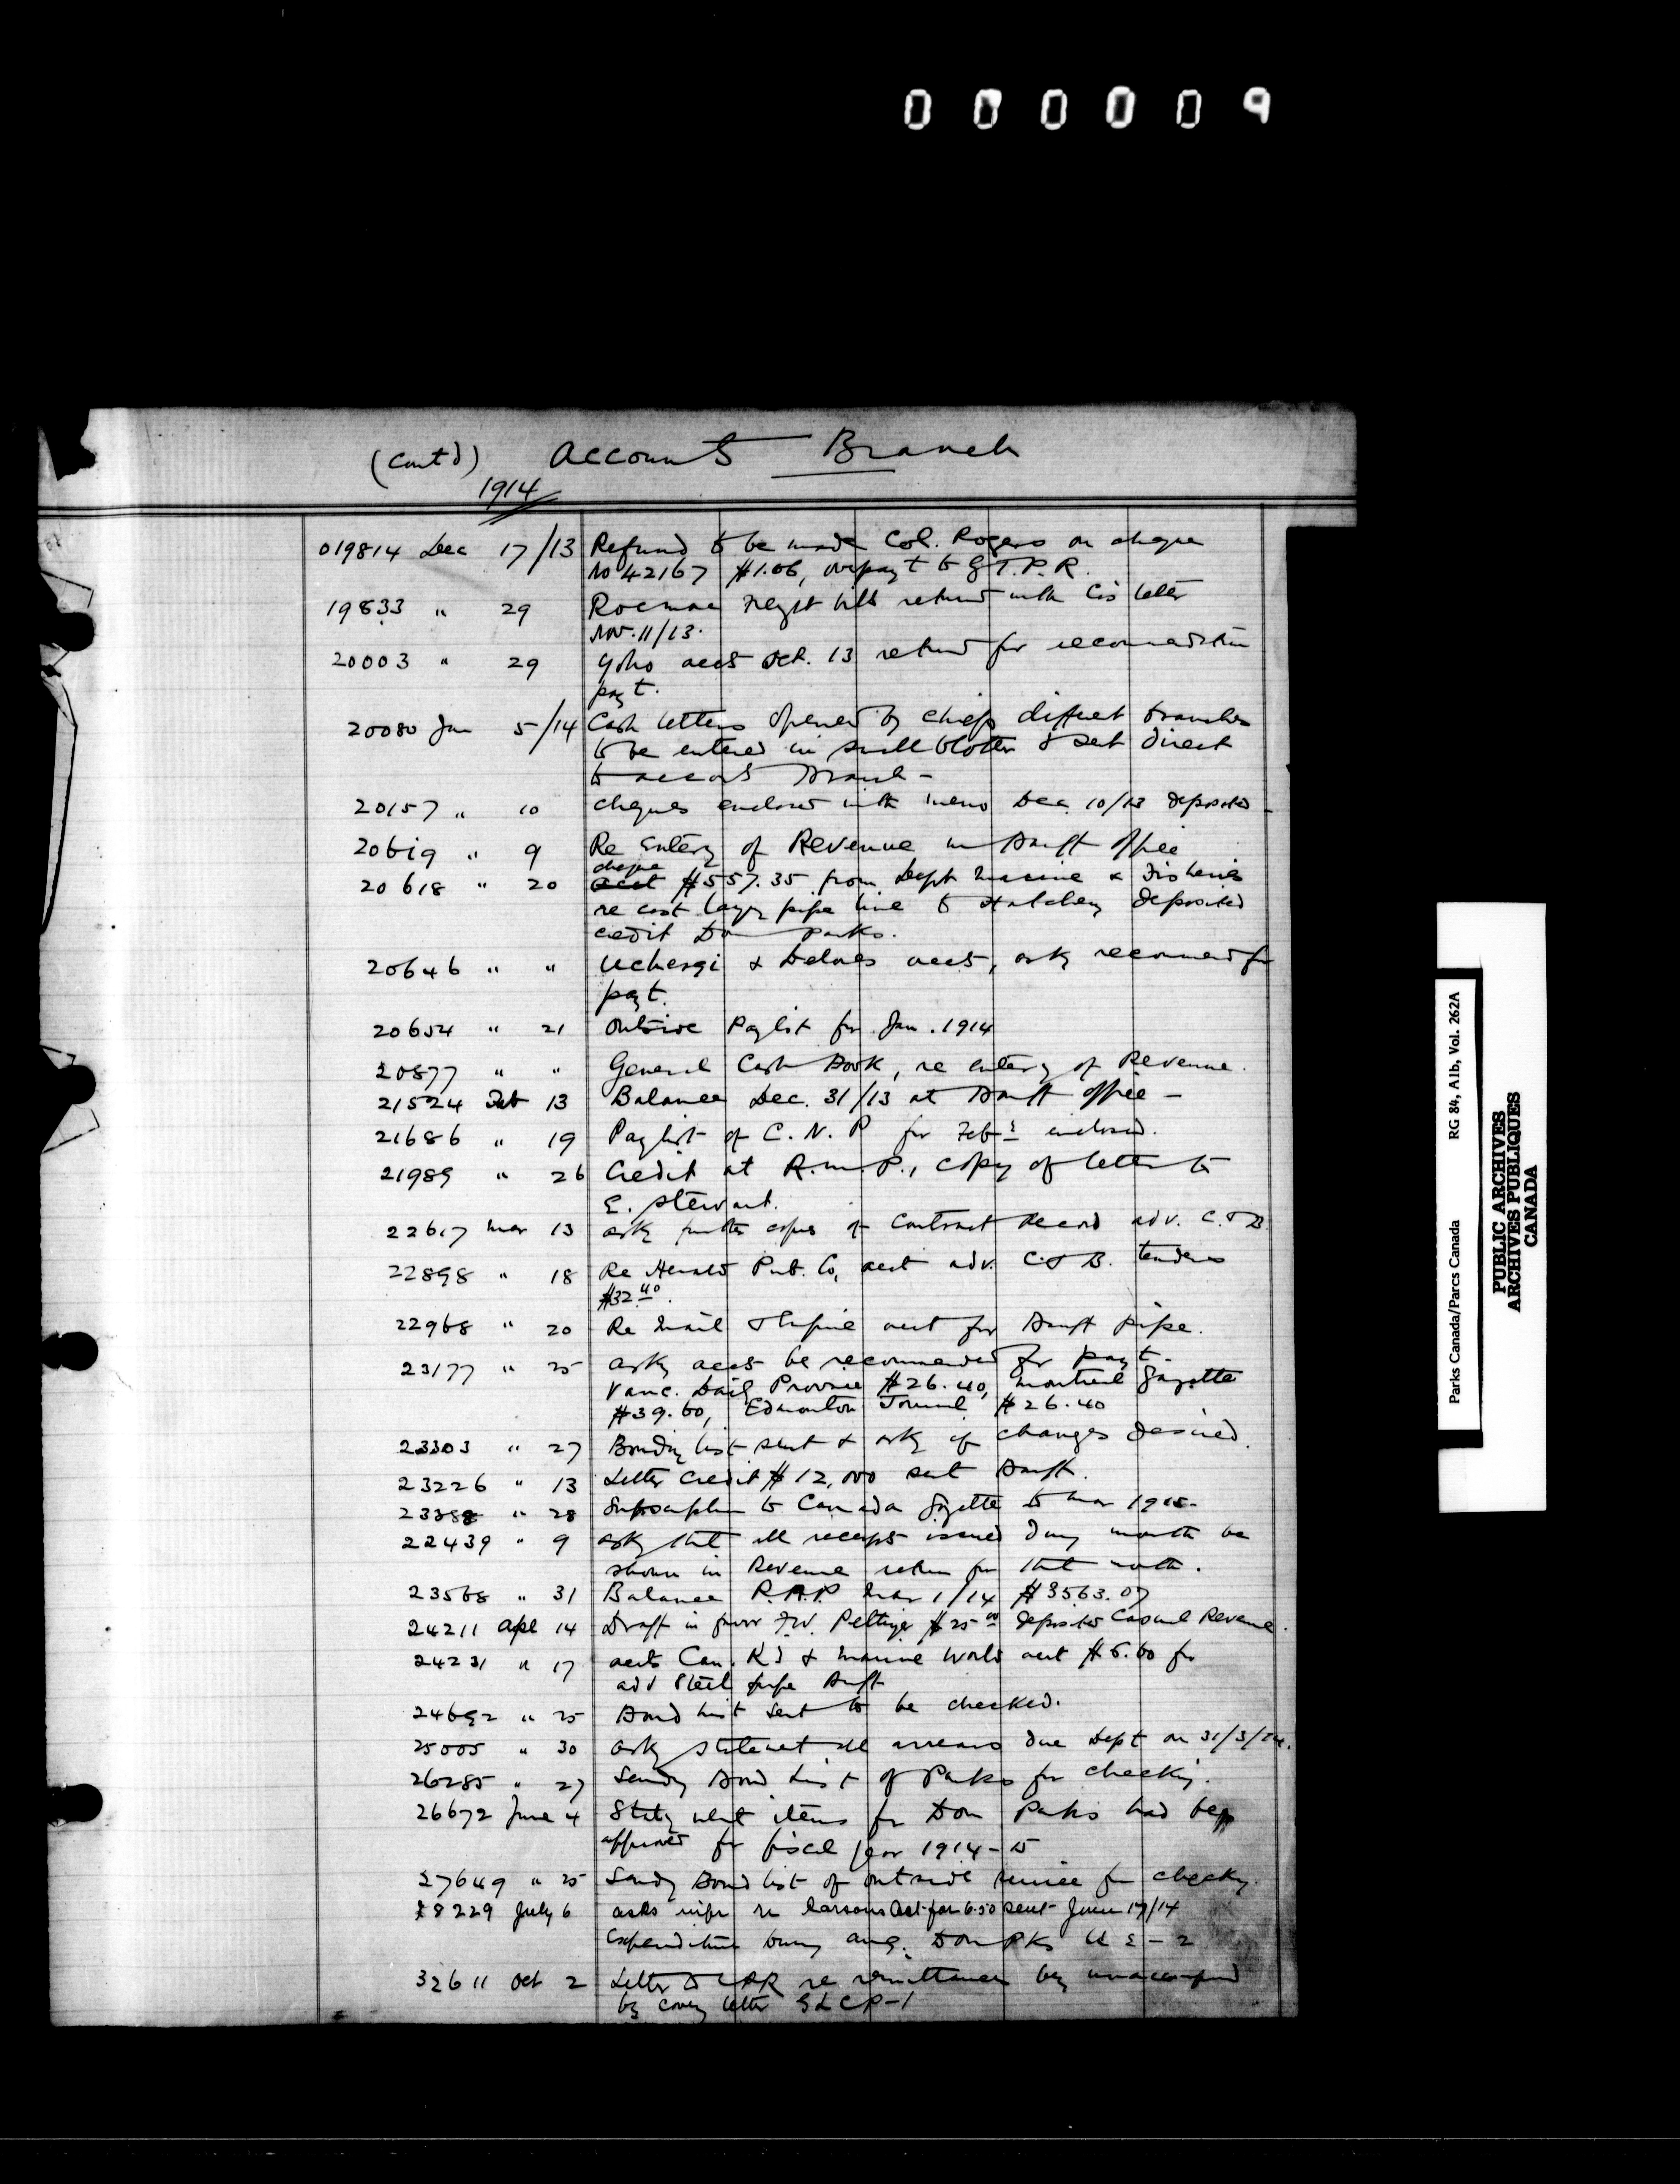 000009
(Cont'd) Accounts Branch
1914
019814 Dec 17/13 Refund to be made Col. Rogers on cheque
no 42167 $1.06, overpayt to G.T.P.R.
19833 " 29 returned with letter
Nov. 11/13.
20003 " 29 Yoho accts Oct. 13 returned for recommendation
payt.
20080 Jan 5/14 Cash letters opened by chiefs different branches
to be entered in small blotter & sent direct
to accounts Branch -
20157 " 10 cheques enclosed with memo Dec. 10/13 deposited -
20619 " 9 Re Entery of Revenue in Banff Office
cheque
20618 " 20 acct $557.35 from Dept Marine & Fisheries
re cost layg pipe line to Hatchery deposited
credit Dom Parks.
20646 " " & accts, askg recommend for
payt.
20654 " 21 Outside Paylist for Jan. 1914
20877 " " General Cash Book, re entery of Revenue.
21524 Feb 13 Balance Dec. 31/13 at Banff office -
21686 " 19 Paylist of C.N.P for Feby enclosed.
21989 " 26 Credit at R.M.P., copy of letter to
E. Stewart.
22617 Mar 13 askg further copies of Contract Record adv. C. & B.
22898 " 18 Re Herald Pub. Co, acct adv. C & B. tenders
$32.40.
22968 " 20 Re Mail & Empire acct for Banff pipe.
23177 " 25 askg accts be recommended for payt -
Vanc. Daily Province $26.40, Montreal Gazette
$39.60, Edmonton Journal $26.40
23303 " 27 Bonding list sent & askg if changes desired.
23226 " 13 Letter Credit $12,000 sent Banff.
23388 " 28 Subscription to Canada Gazette to Mar 1915-
22439 " 9 askg that all receipts issued during month be
shown in Revenue return for that month.
23568 " 31 Balance R.M.P. Mar 1/14 $3563.07
24211 Apl 14 Draft in favor F.W. Pettinger $25.00 deposited Casual Revenue.
24231 " 17 accts Can. Ry & Marine World acct $6.60 for
adv steel pipe Banff
24692 " 25 Bond list sent to be checked.
25005 " 30 askg statement all arrears due Dept on 31/3/14.
26285 " 27 Sendg Bond List of Parks for checking.
26672 June 4 Statg what items for Dom Parks had been
approved for fiscal year 1914-15
27649 " 25 Sendg Bond list of outside service for checkg.
28229 July 6 asks infor re Larsons acct for 6.50 sent June 17/14
Expenditure during Aug. Dom Pks U 2-2
32611 Oct 2 Letter to CPR re remittances by unaccompd
by coverg letter G L C P-1
Parks Canada/Parcs Canada RG 84, A1b, Vol. 262A
PUBLIC ARCHIVES
ARCHIVES PUBLIQUES
CANADA